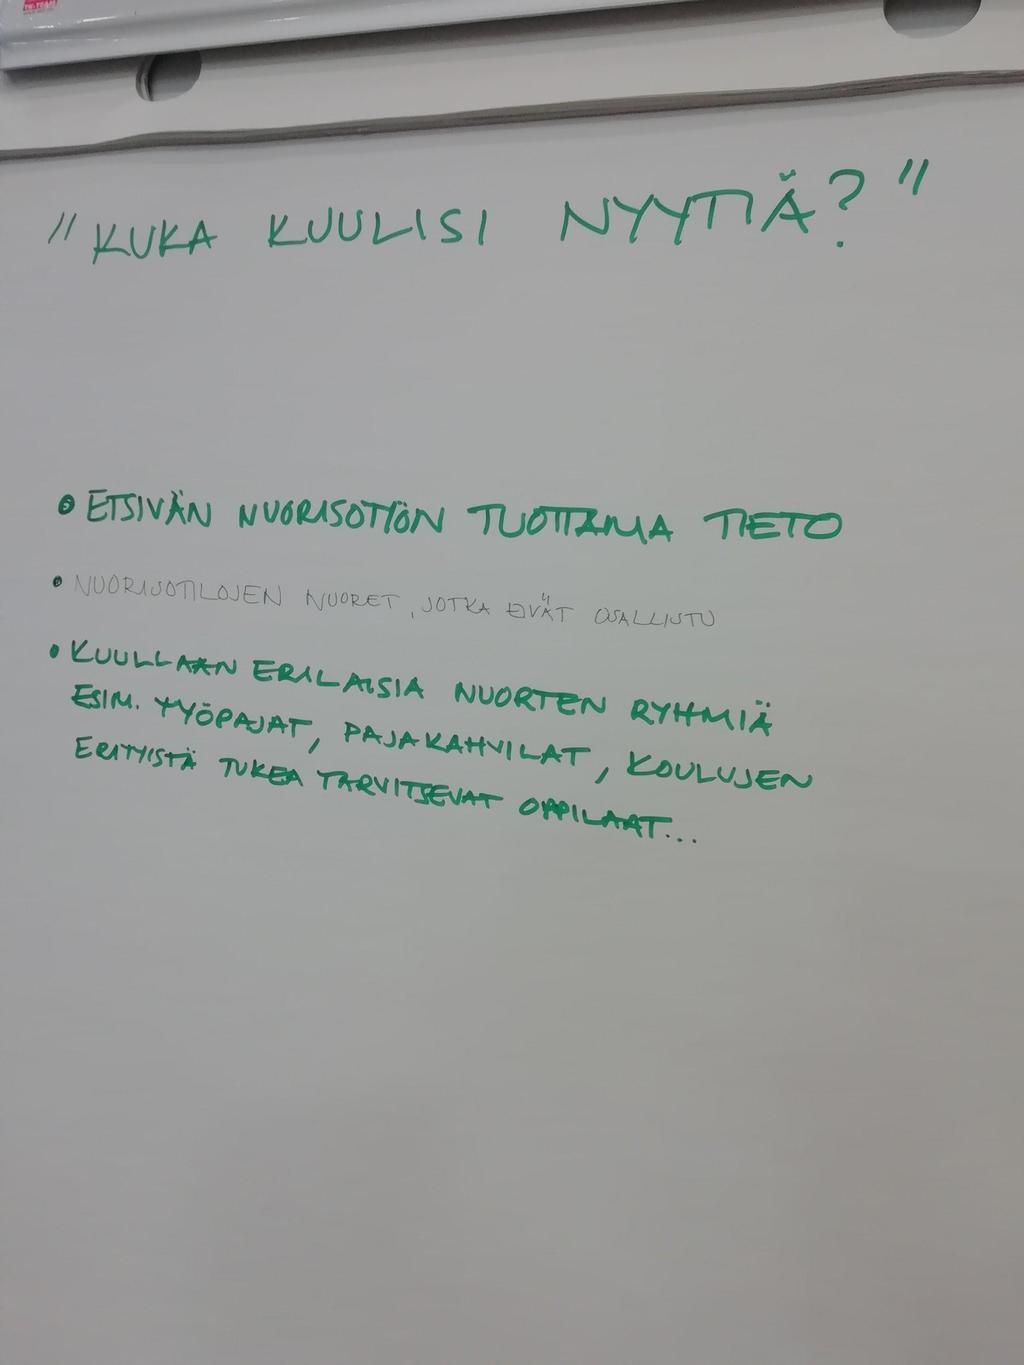 "KUKA KUULISI NYYTIÄ?"
• ETSIVÄN NUORISOTYÖN TUOTTAMA TIETO
• NUORISOTILOJEN NUORET, JOTKA EIVÄT OSALLISTU
• KUULLAAN ERILAISIA NUORTEN RYHMIÄ
ESIM. TYÖPAJAT, PAJAKAHVILAT, KOULUJEN
ERITYISTÄ TUKEA TARVITSEVAT OPPILAAT...